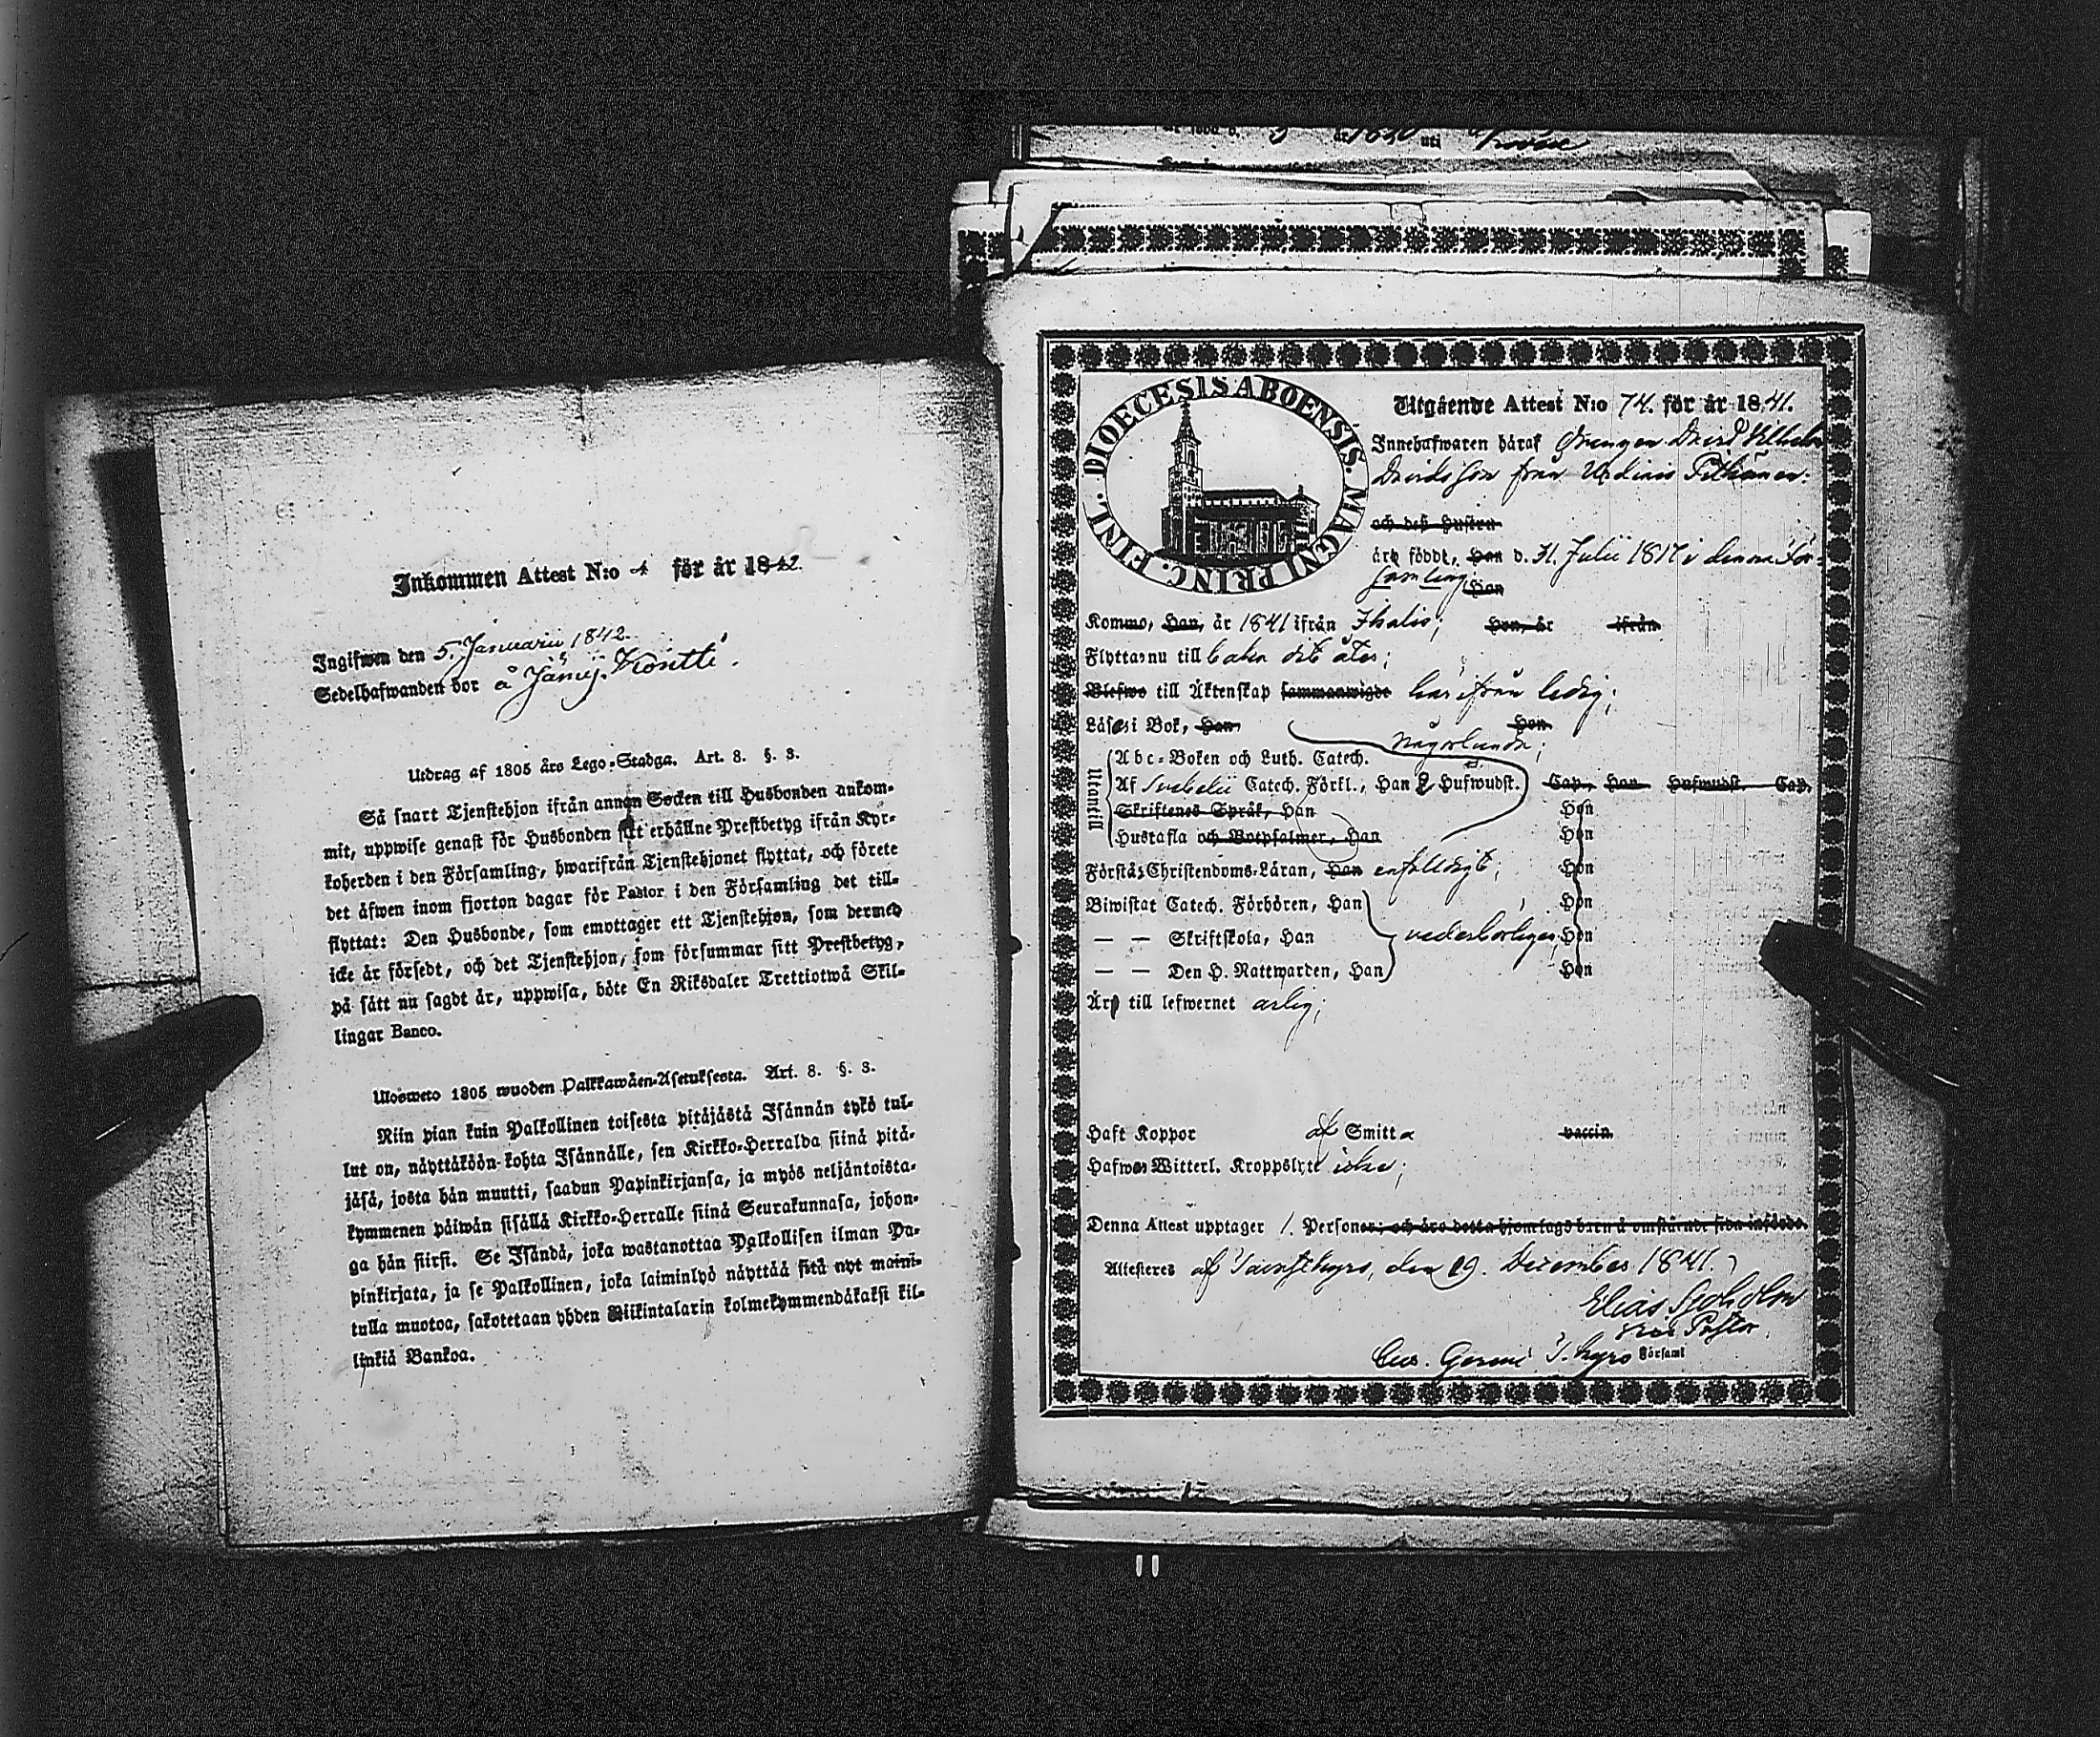 Inkommen Attest N:o 4 för år 1842.
Ingifwen den 5. Januarii, 1842.
Sedelhafwanden bor å
Utdrag af 1805 års Lego-Stadga. Art. 8. §. 3.
Så snart Tjenstehjon ifrån annan Socken till Husbonden ankom-
mit, uppwise genast för Husbonden sitt erhållne Prestbetyg ifrån Kyr-
koherden i den Församling, hwarifrån Tjenstehjonet flyttat, och förete
det äfwen inom fjorton dagar för Pastor i den Församling det till-
flyttat: Den Husbonde, som emottager ett Tjenstehjon, som dermed
icke är försedt, och det Tjenstehjon, som försummar sitt Prestbetyg,
på sätt nu sagdt är, uppwisa, böte En Riksdaler Trettiotwå Skil-
lingar Banco.
Ulosweto 1805 wuoden Palkkawäen-Asetuksesta. Art. 8. §. 3.
Niin pian kuin Palkollinen toisesta pitäjästä Isännän tykö tul-
lut on, näyttäköön kohta Isännälle, sen Kirkko-Herralda siinä pitä-
jäsä, josta hän muutti, saadun Papinkirjansa, ja myös neljäntoista-
kymmenen päiwän sisällä Kirkko-Herralle siinä Seurakunnasa, johon-
ga hän siirsi. Se Isändä, joka wastanottaa Palkollisen ilman Pa-
pinkirjata, ja se Palkollinen, joka laiminlyö näyttää sitä nyt maini-
tulla muotoa, sakotetaan yhden Riikintalarin kolmekymmendäkaksi kil-
linkiä Bankoa.
DIOECESIS ABOENSIS. MAGNI PRINC. FINL.
Utgående Attest N:o 74. för år 1841.
Innehafwaren häraf Drengen David Wilhelm
Davidsson från
och dess Hustru
äro födde, Han d. 31. Julii 1817 i denna För-
samling; Hon
Kommo, Han, år 1841 ifrån Ihalis; Hon, år ifrån
Flyttar nu till baka dit åter;
Blefwo till Äktenskap sammanwigde härifrån ledig;
Läser i Bok, Han Hon
någorlunda;
Utantill
Abc-Boken och Luth. Catech.
Af Svebelii Catech. Förkl., Han 2 Hufwudst. Cap., Hon Hufwudst. Cap.
Skriftenes Språk, Han Hon
Hustafla och Botpsalmer, Han Hon
Förstår Christendoms-Läran, Han enfaldigt; Hon
Biwistat Catech. Förhören, Han Hon
— — Skriftskola, Han vederbörligen; Hon
— — Den H. Nattwarden, Han Hon
Är till lefwernet ärlig;
Haft Koppor af Smitta vaccin.
Hafwer Witterl. Kroppslyte icke;
Denna Attest upptager 1. Personer, och äro detta hjonelags barn å omstående sida införde.
Attesteres af Tavastkyro, den 29. December 1841.
Elias Sjöholm
Vice Pastor
T. Kyro Församl